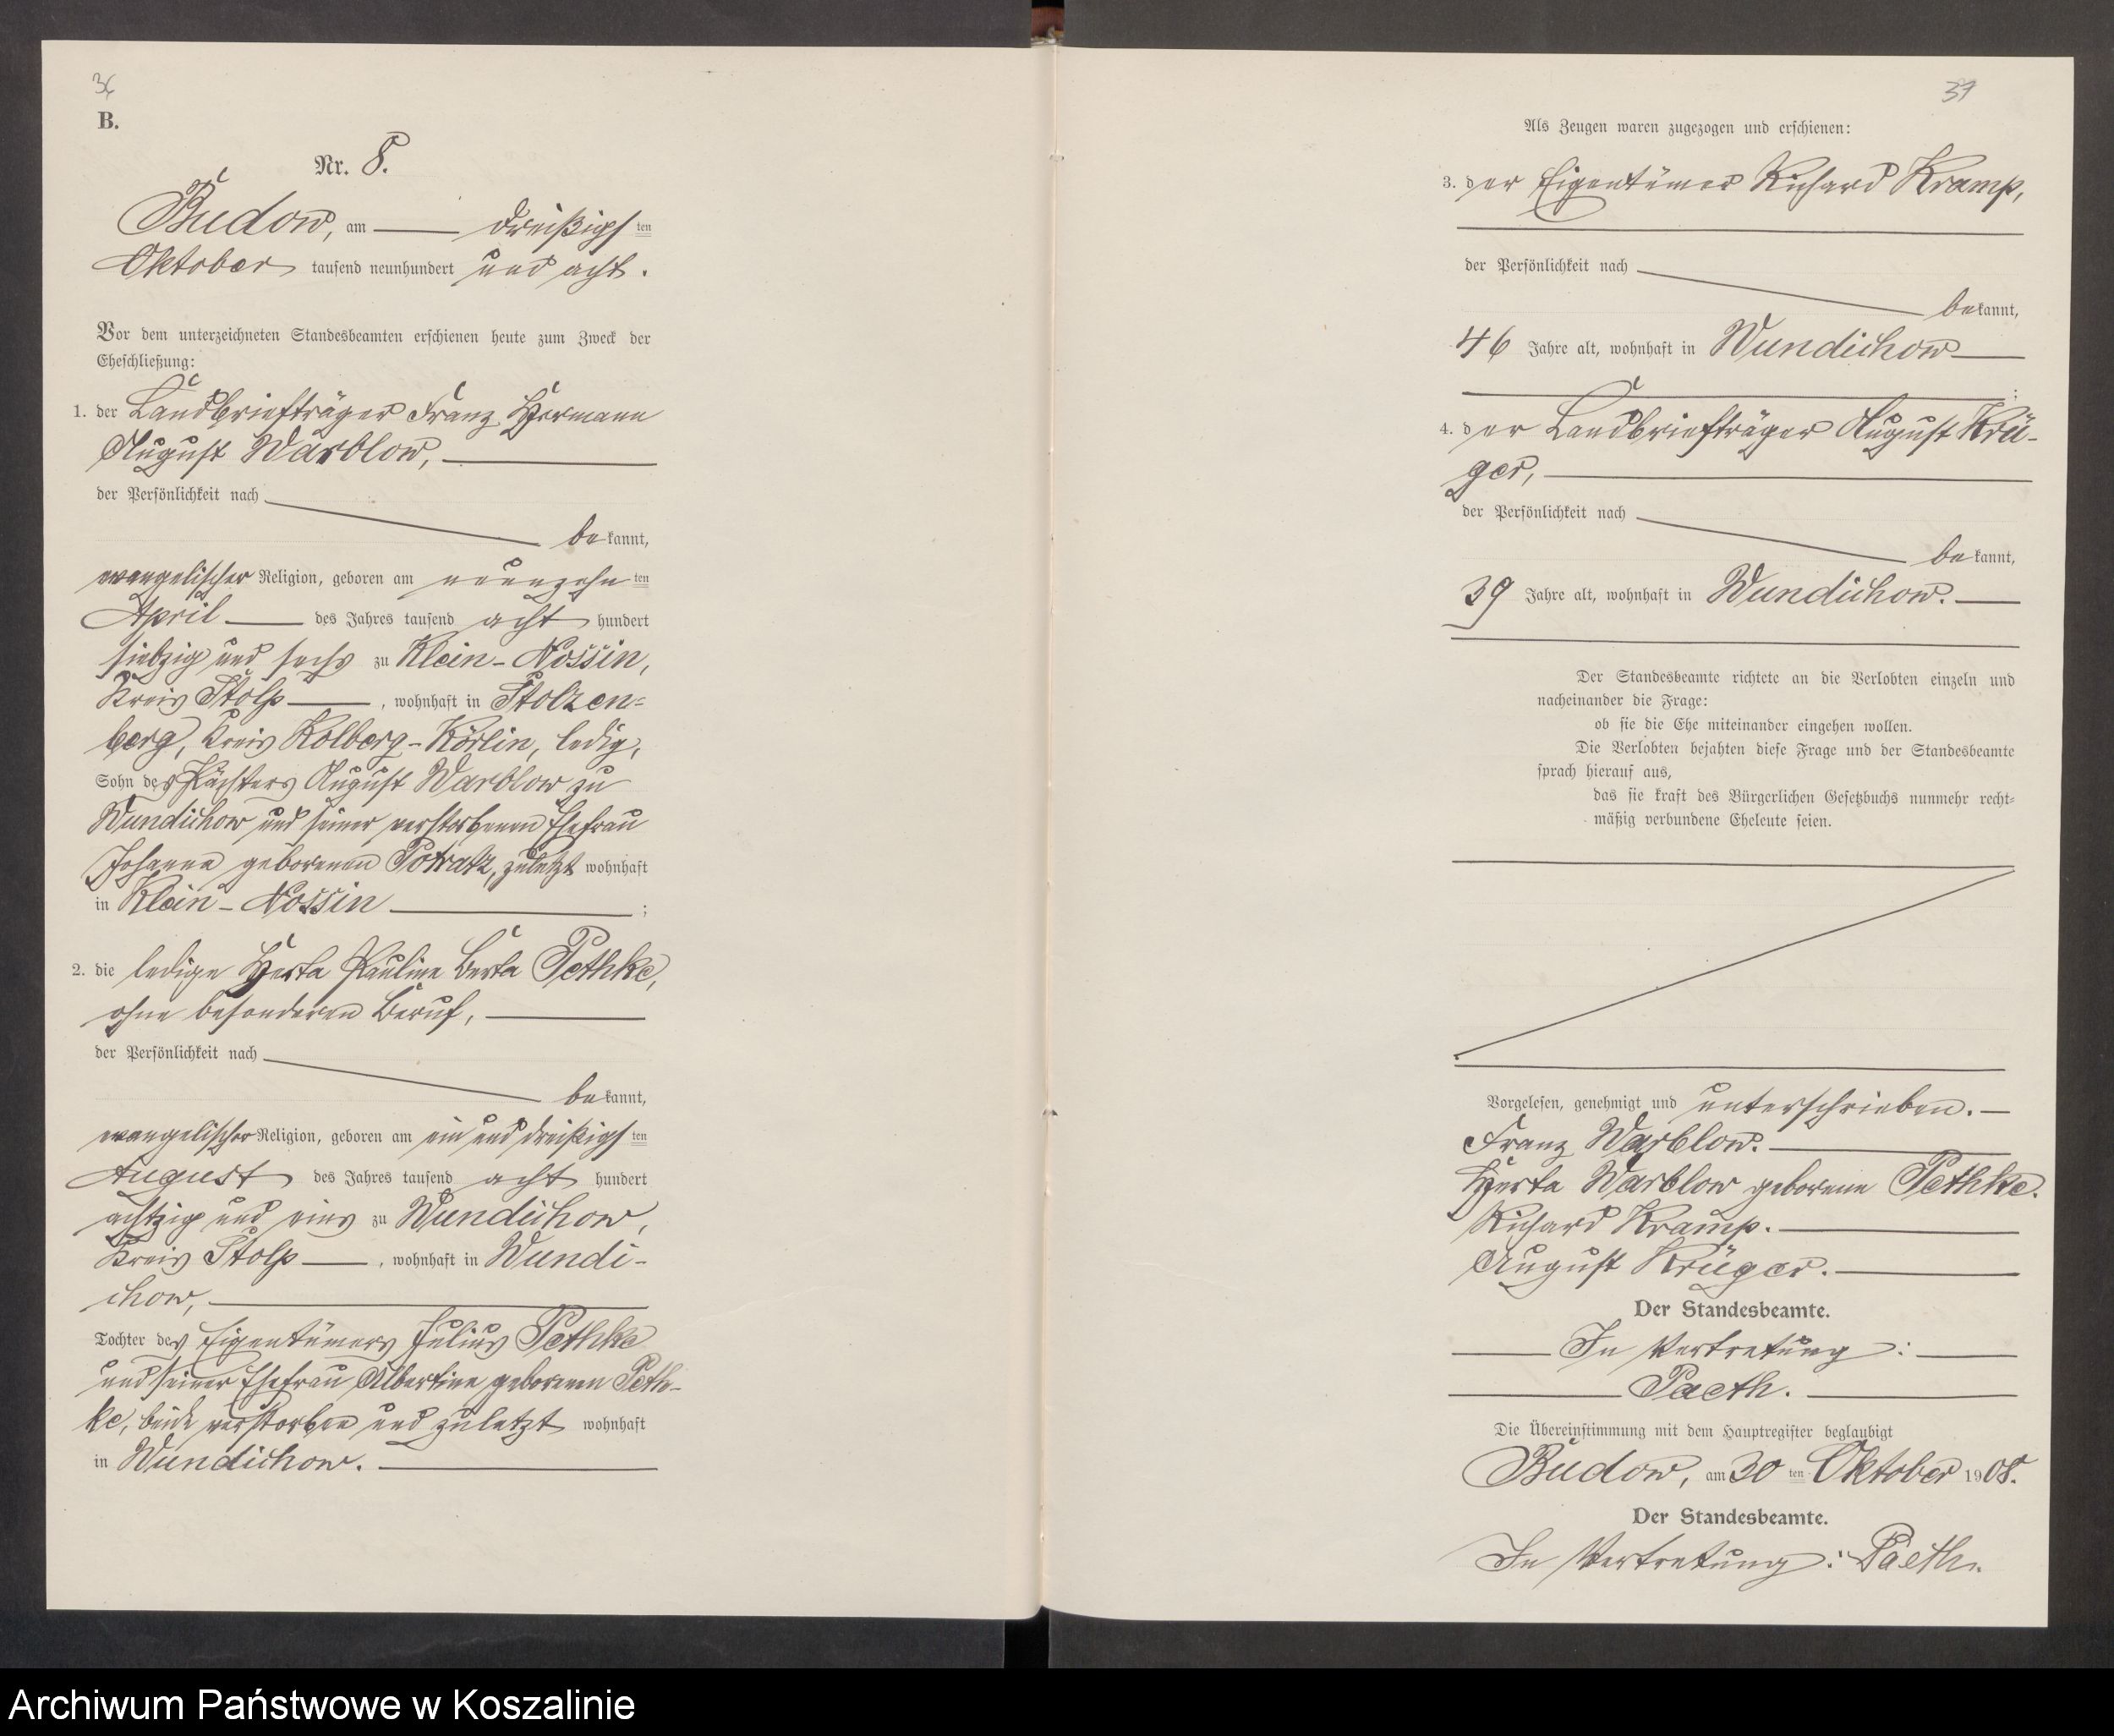 36
B.
Nr. 8.
Budow, am dreißigsten
Oktober tausend neunhundert und acht.
Vor dem unterzeichneten Standesbeamten erschienen heute zum Zweck der
Eheschließung:
1. der Landbriefträger Franz Hermann
August Warblow,
der Persönlichkeit nach
bekannt,
evangelischer Religion, geboren am neunzehnten
April des Jahres tausend acht hundert
siebzig und sechs zu Klein-Nossin,
Kreis Stolp, wohnhaft in Stolzen-
berg, Kreis Kolberg-Körlin, ledig,
Sohn des Pächters August Warblow zu
Wundichow und seiner verstorbenen Ehefrau
Johanna geborenen Potratz, zuletzt wohnhaft
in Klein-Nossin;
2. die ledige Herta Pauline Berta Pethke,
ohne besonderen Beruf,
der Persönlichkeit nach
bekannt,
evangelischer Religion, geboren am ein und dreißigsten
August des Jahres tausend acht hundert
achtzig und eins zu Wundichow,
Kreis Stolp, wohnhaft in Wundi-
chow,
Tochter des Eigentümers Julius Pethke
und seiner Ehefrau Albertine geborenen Peth-
ke, beide verstorben und zuletzt wohnhaft
in Wundichow.
37
Als Zeugen waren zugezogen und erschienen:
3. der Eigentümer Richard Kramp,
der Persönlichkeit nach
bekannt,
46 Jahre alt, wohnhaft in Wundichow
;
4. der Landbriefträger August Krü-
ger,
der Persönlichkeit nach
bekannt,
39 Jahre alt, wohnhaft in Wundichow.
Der Standesbeamte richtete an die Verlobten einzeln und
nacheinander die Frage:
ob sie die Ehe miteinander eingehen wollen.
Die Verlobten bejahten diese Frage und der Standesbeamte
sprach hierauf aus,
das sie kraft des Bürgerlichen Gesetzbuchs nunmehr recht-
mäßig verbundene Eheleute seien.
Vorgelesen, genehmigt und unterschrieben.
Franz Warblow.
Herta Warblow geborene Pethke.
Richard Kramp.
August Krüger.
Der Standesbeamte.
In Vertretung:
Paeth.
Die Übereinstimmung mit dem Hauptregister beglaubigt
Budow, am 30ten Oktober 1908.
Der Standesbeamte.
In Vertretung: Paeth.
Archiwum Państwowe w Koszalinie